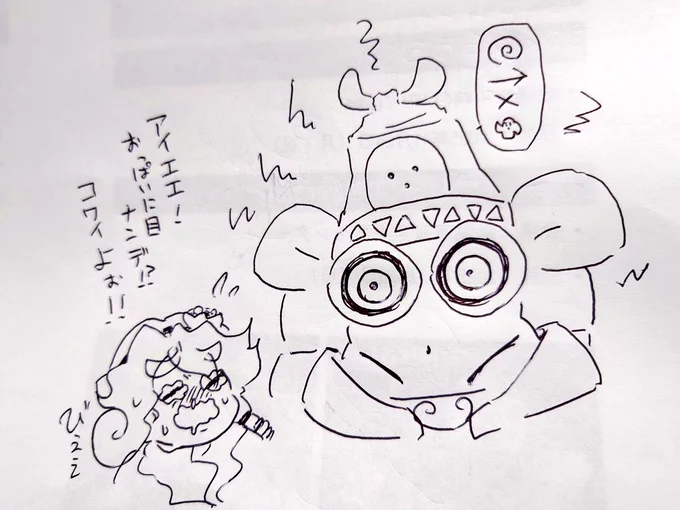 アイエエ!
おっぱいに目
ナンデ!?
コワイよぉ!!
びええ